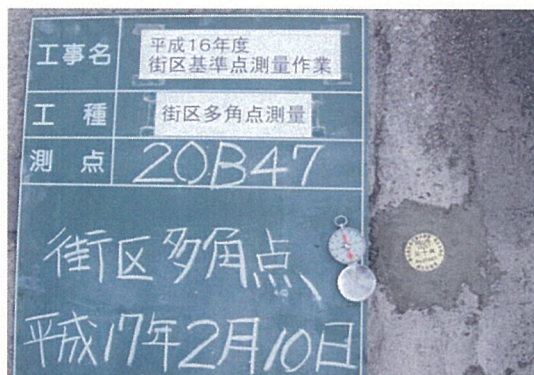 工事名
平成16年度
街区基準点測量作業
工種
街区多角点測量
測点
20B47
街区多角点
平成17年2月10日